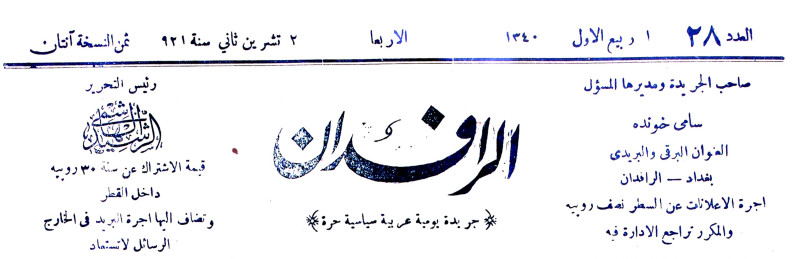 العدد ٢٨ ١ ربيع الاول ١٣٤٠ الاربعا ٢ تشرين ثاني سنة ٩٢١ ثمن النسخة آنتان
صاحب الجريدة ومديرها المسؤل
سامى خونده
العنوان البرقى والبريدى
بغداد — الرافدان
اجرة الاعلانات عن السطر نصف روبيه
والمكرر تراجع الادارة فيه
الرافدان
جريدة يومية عربية سياسية حرة
رئيس التحرير
الرشيد الهاشمي
قيمة الاشتراك عن سنة ٣٠ روبيه
داخل القطر
وتضاف اليها اجرة البريد فى الخارج
الرسائل لاتستعاد